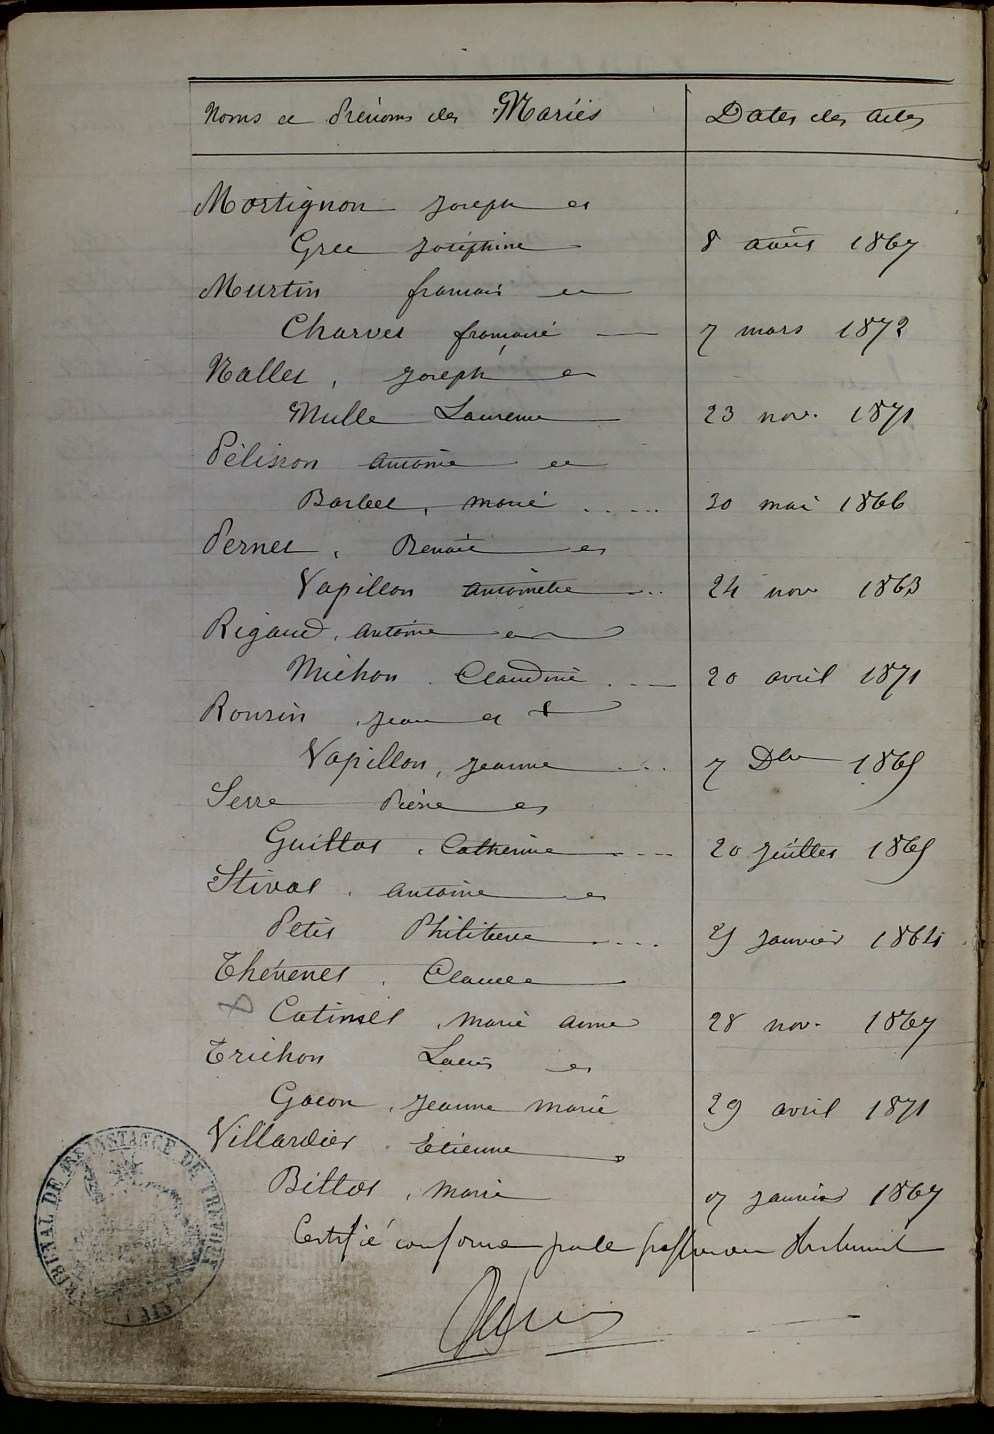 Noms et Prénoms des Mariés Dates des actes
Mortignon Joseph et
Gree Joséphine 8 août 1867
Murtin françois et
Charvet françoise 7 mars 1872
Nallet, Joseph et
Mulle Laurence 23 nov. 1871
Pélisson antoine et
Barbet, marie 30 mai 1866
Pernet, Benoit et
Vapillon antoinette 24 nov 1863
Rigaud, antoine et
Michon Claudine 20 avril 1871
Ronzin, Jean et
Vapillon, Jeanne 7 Dbre 1865
Serre Pierre et
Guillot, Catherine 20 juillet 1865
Stival, antoine et
Petit Philiberte 25 janvier 1864
Thévenet, Claude
Catinet, marie anne 28 nov. 1867
Trichon Louis et
Gacon, Jeanne marie 29 avril 1871
Villardier, Etienne
Billot, marie 17 janvier 1867
Certifié conforme par le greffier du tribunal
TRIBUNAL DE 1ERE INSTANCE DE TREVOUX
(AIN)